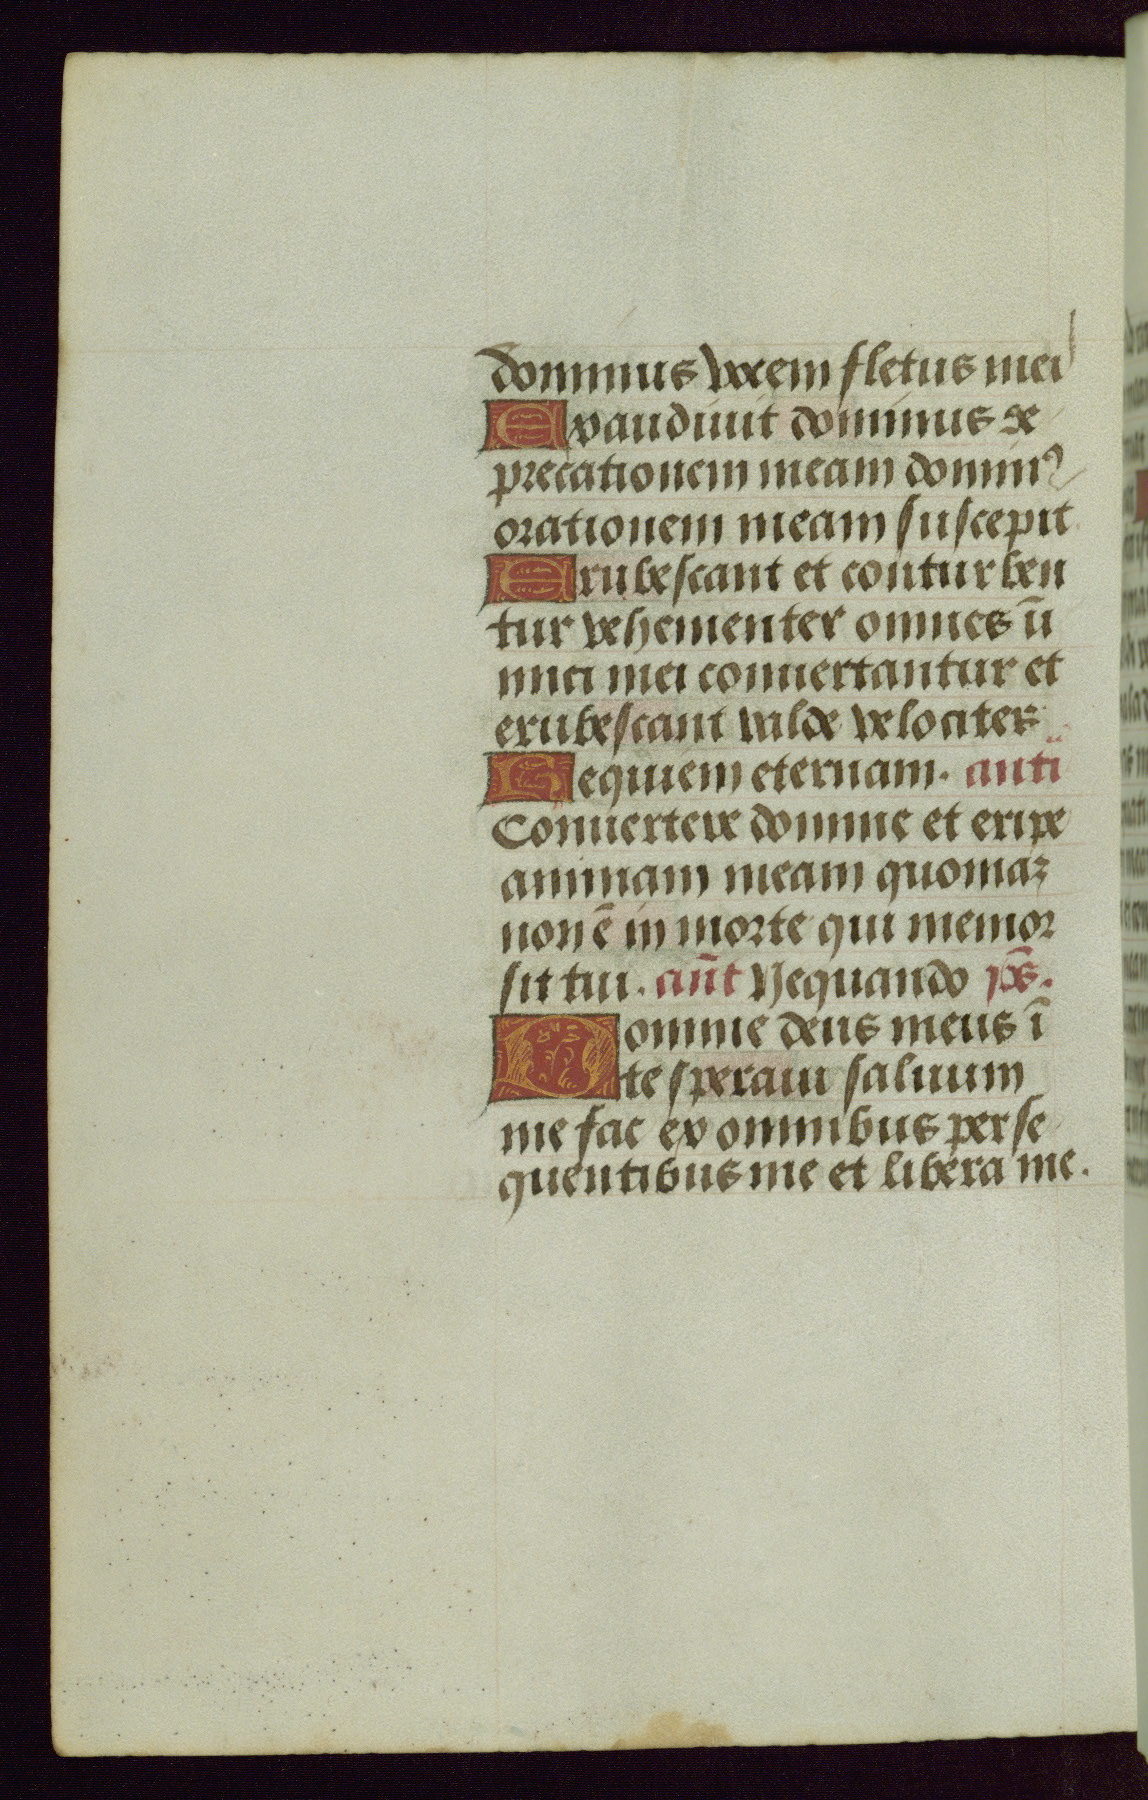 dominus vocem fletus mei
Exaudiuit dominus de
precationem meam domin⁹
orationem meam suscepit
Erubescant et conturben
tur vehementer omnes ini
mici mei conuertantur et
erubescant valde velociter
Requiem eternam. anti
Conuertere domine et eripe
animam meam quoniaz
non ē in morte qui memor
sit tui. an̄t Nequando p̄s.
Domine deus meus ī
te speraui saluum
me fac ex omnibus perse
quentibus me et libera me.